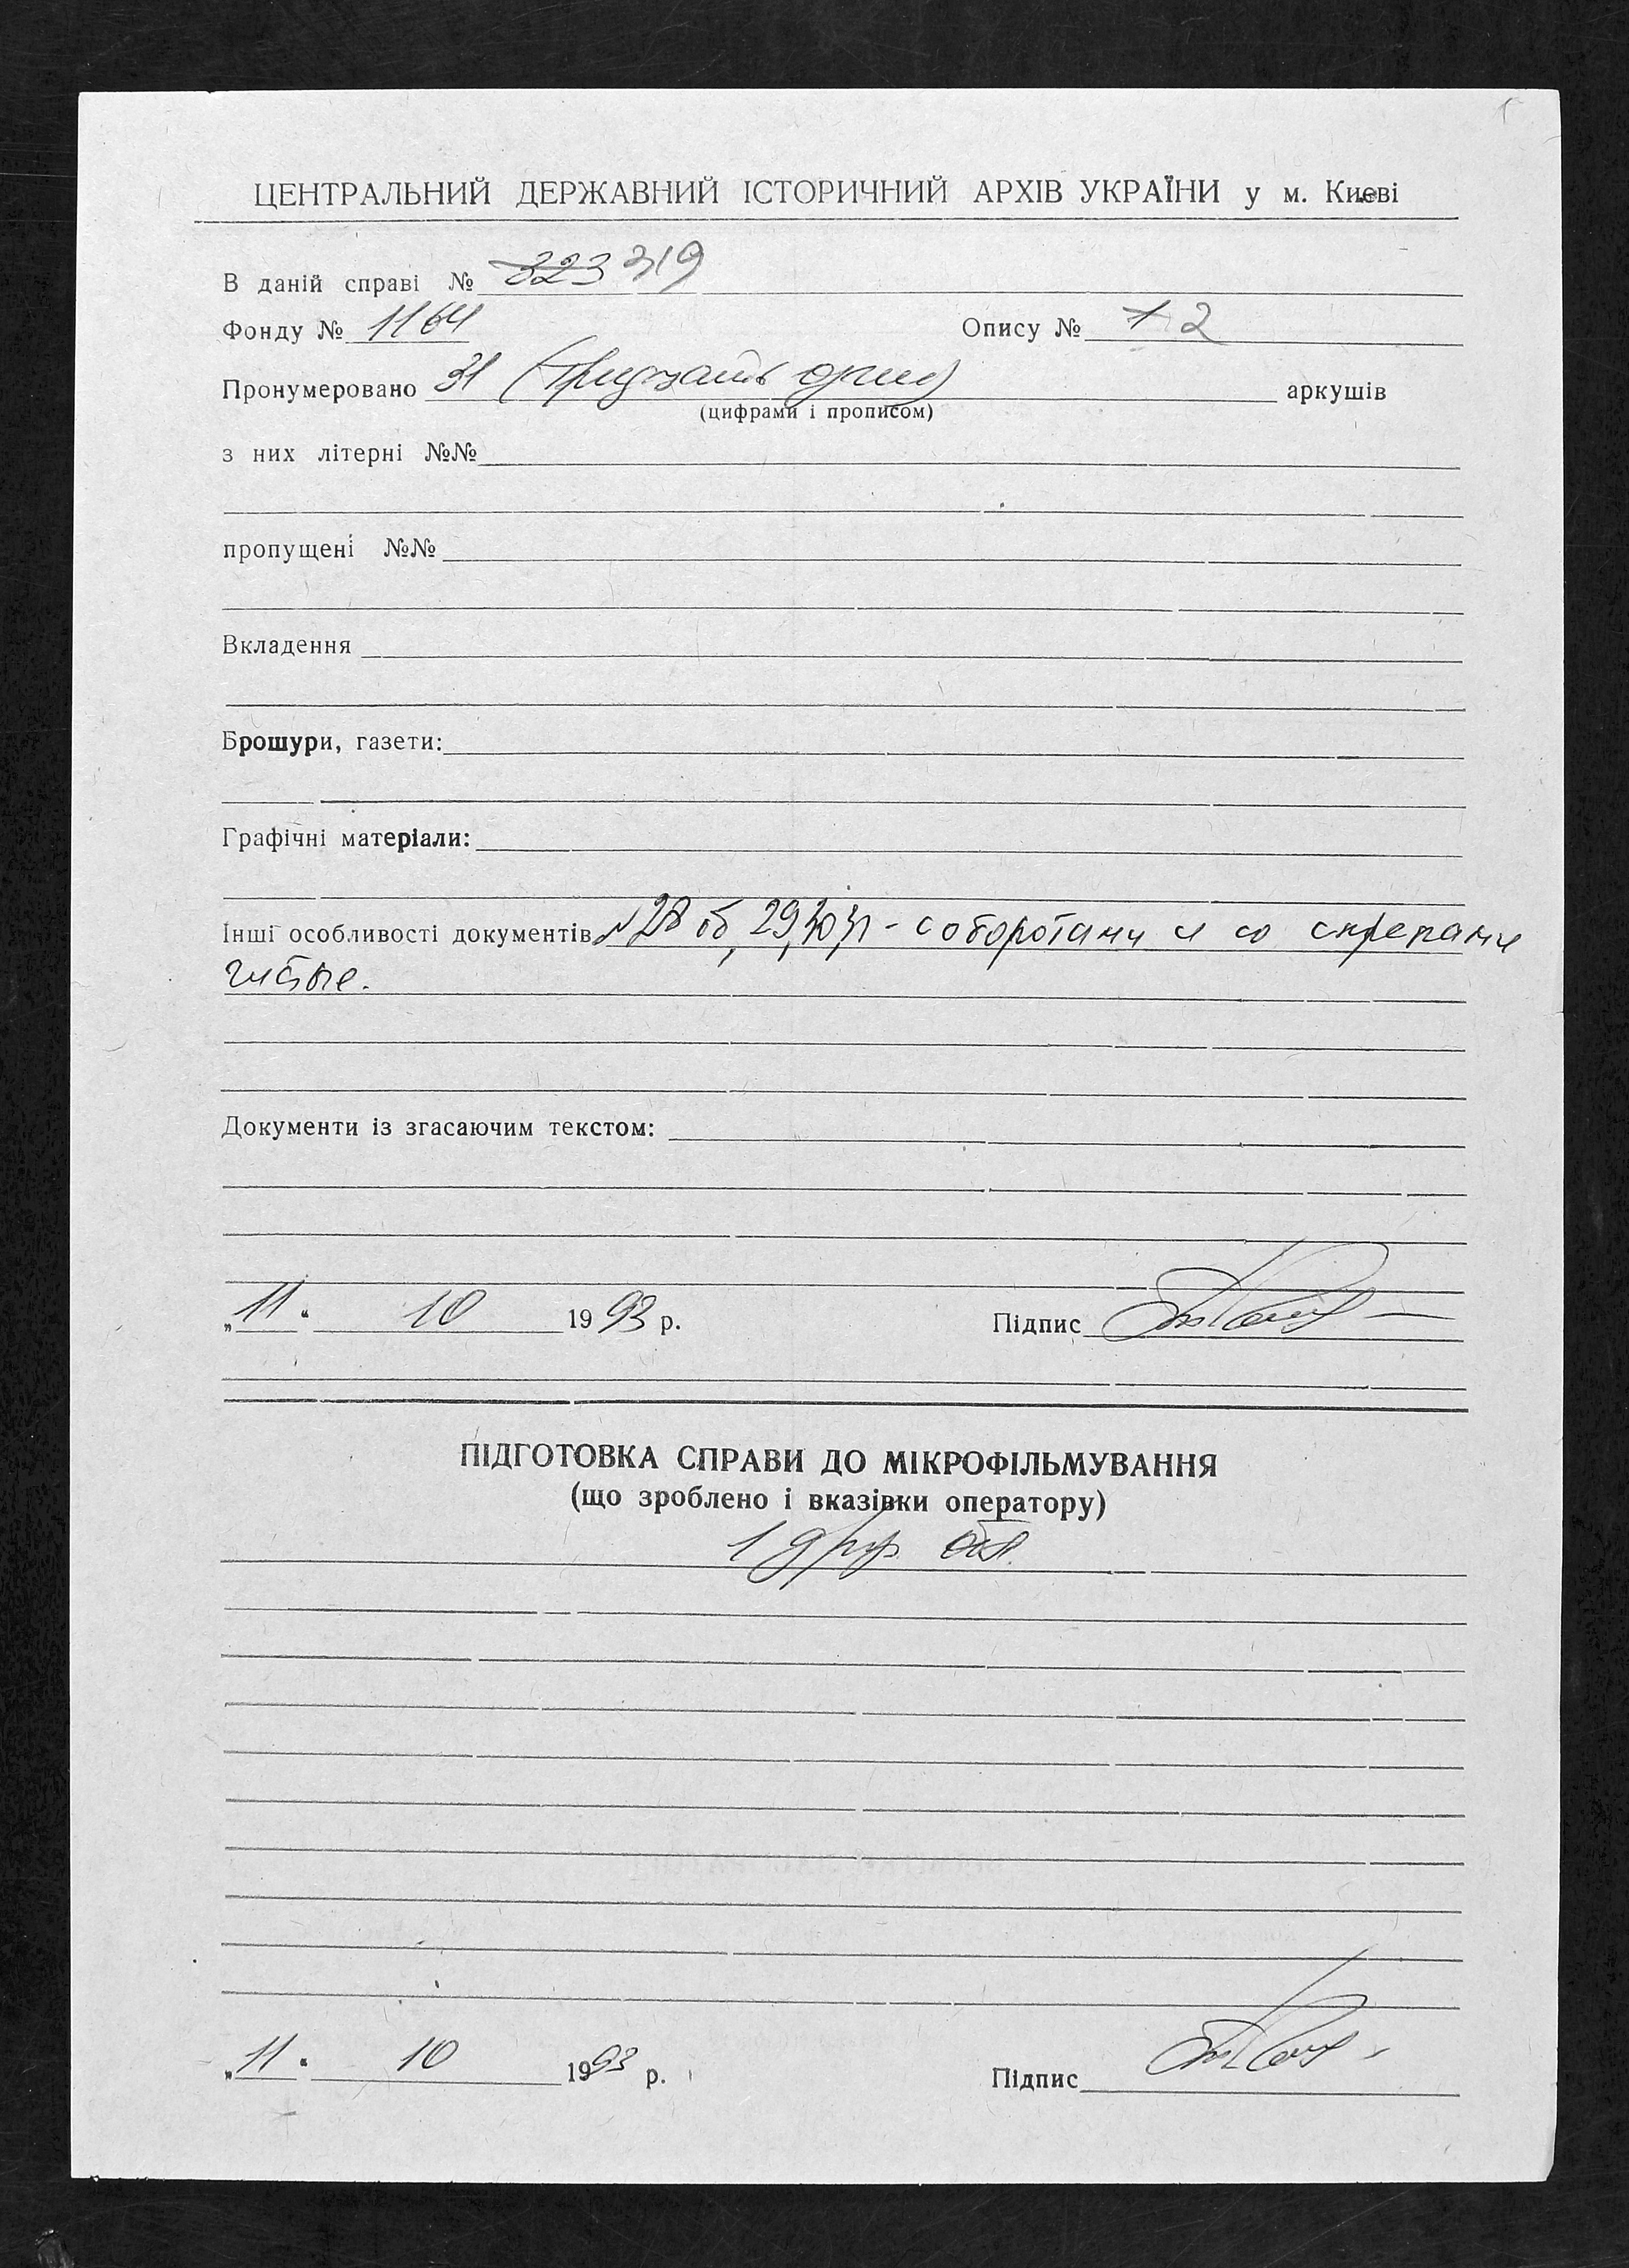 ЦЕНТРАЛЬНИЙ ДЕРЖАВНИЙ ІСТОРИЧНИЙ АРХІВ УКРАЇНИ у м. Києві
В даній справі № 323 319
Фонду № 1164 Опису № 1 2
Пронумеровано 31 (тридцать один) аркушів
(цифрами і прописом)
з них літерні №№
пропущені №№
Вкладення
Брошури, газети:
Графічні матеріали:
Інші особливості документів 28 об, 29, 30, 31 - с оборотами и со скрепами
чистые.
Документи із згасаючим текстом:
„11“ 10 1993 р. Підпис
ПІДГОТОВКА СПРАВИ ДО МІКРОФІЛЬМУВАННЯ
(що зроблено і вказівки оператору)
1
„11“ 10 1993 р. Підпис